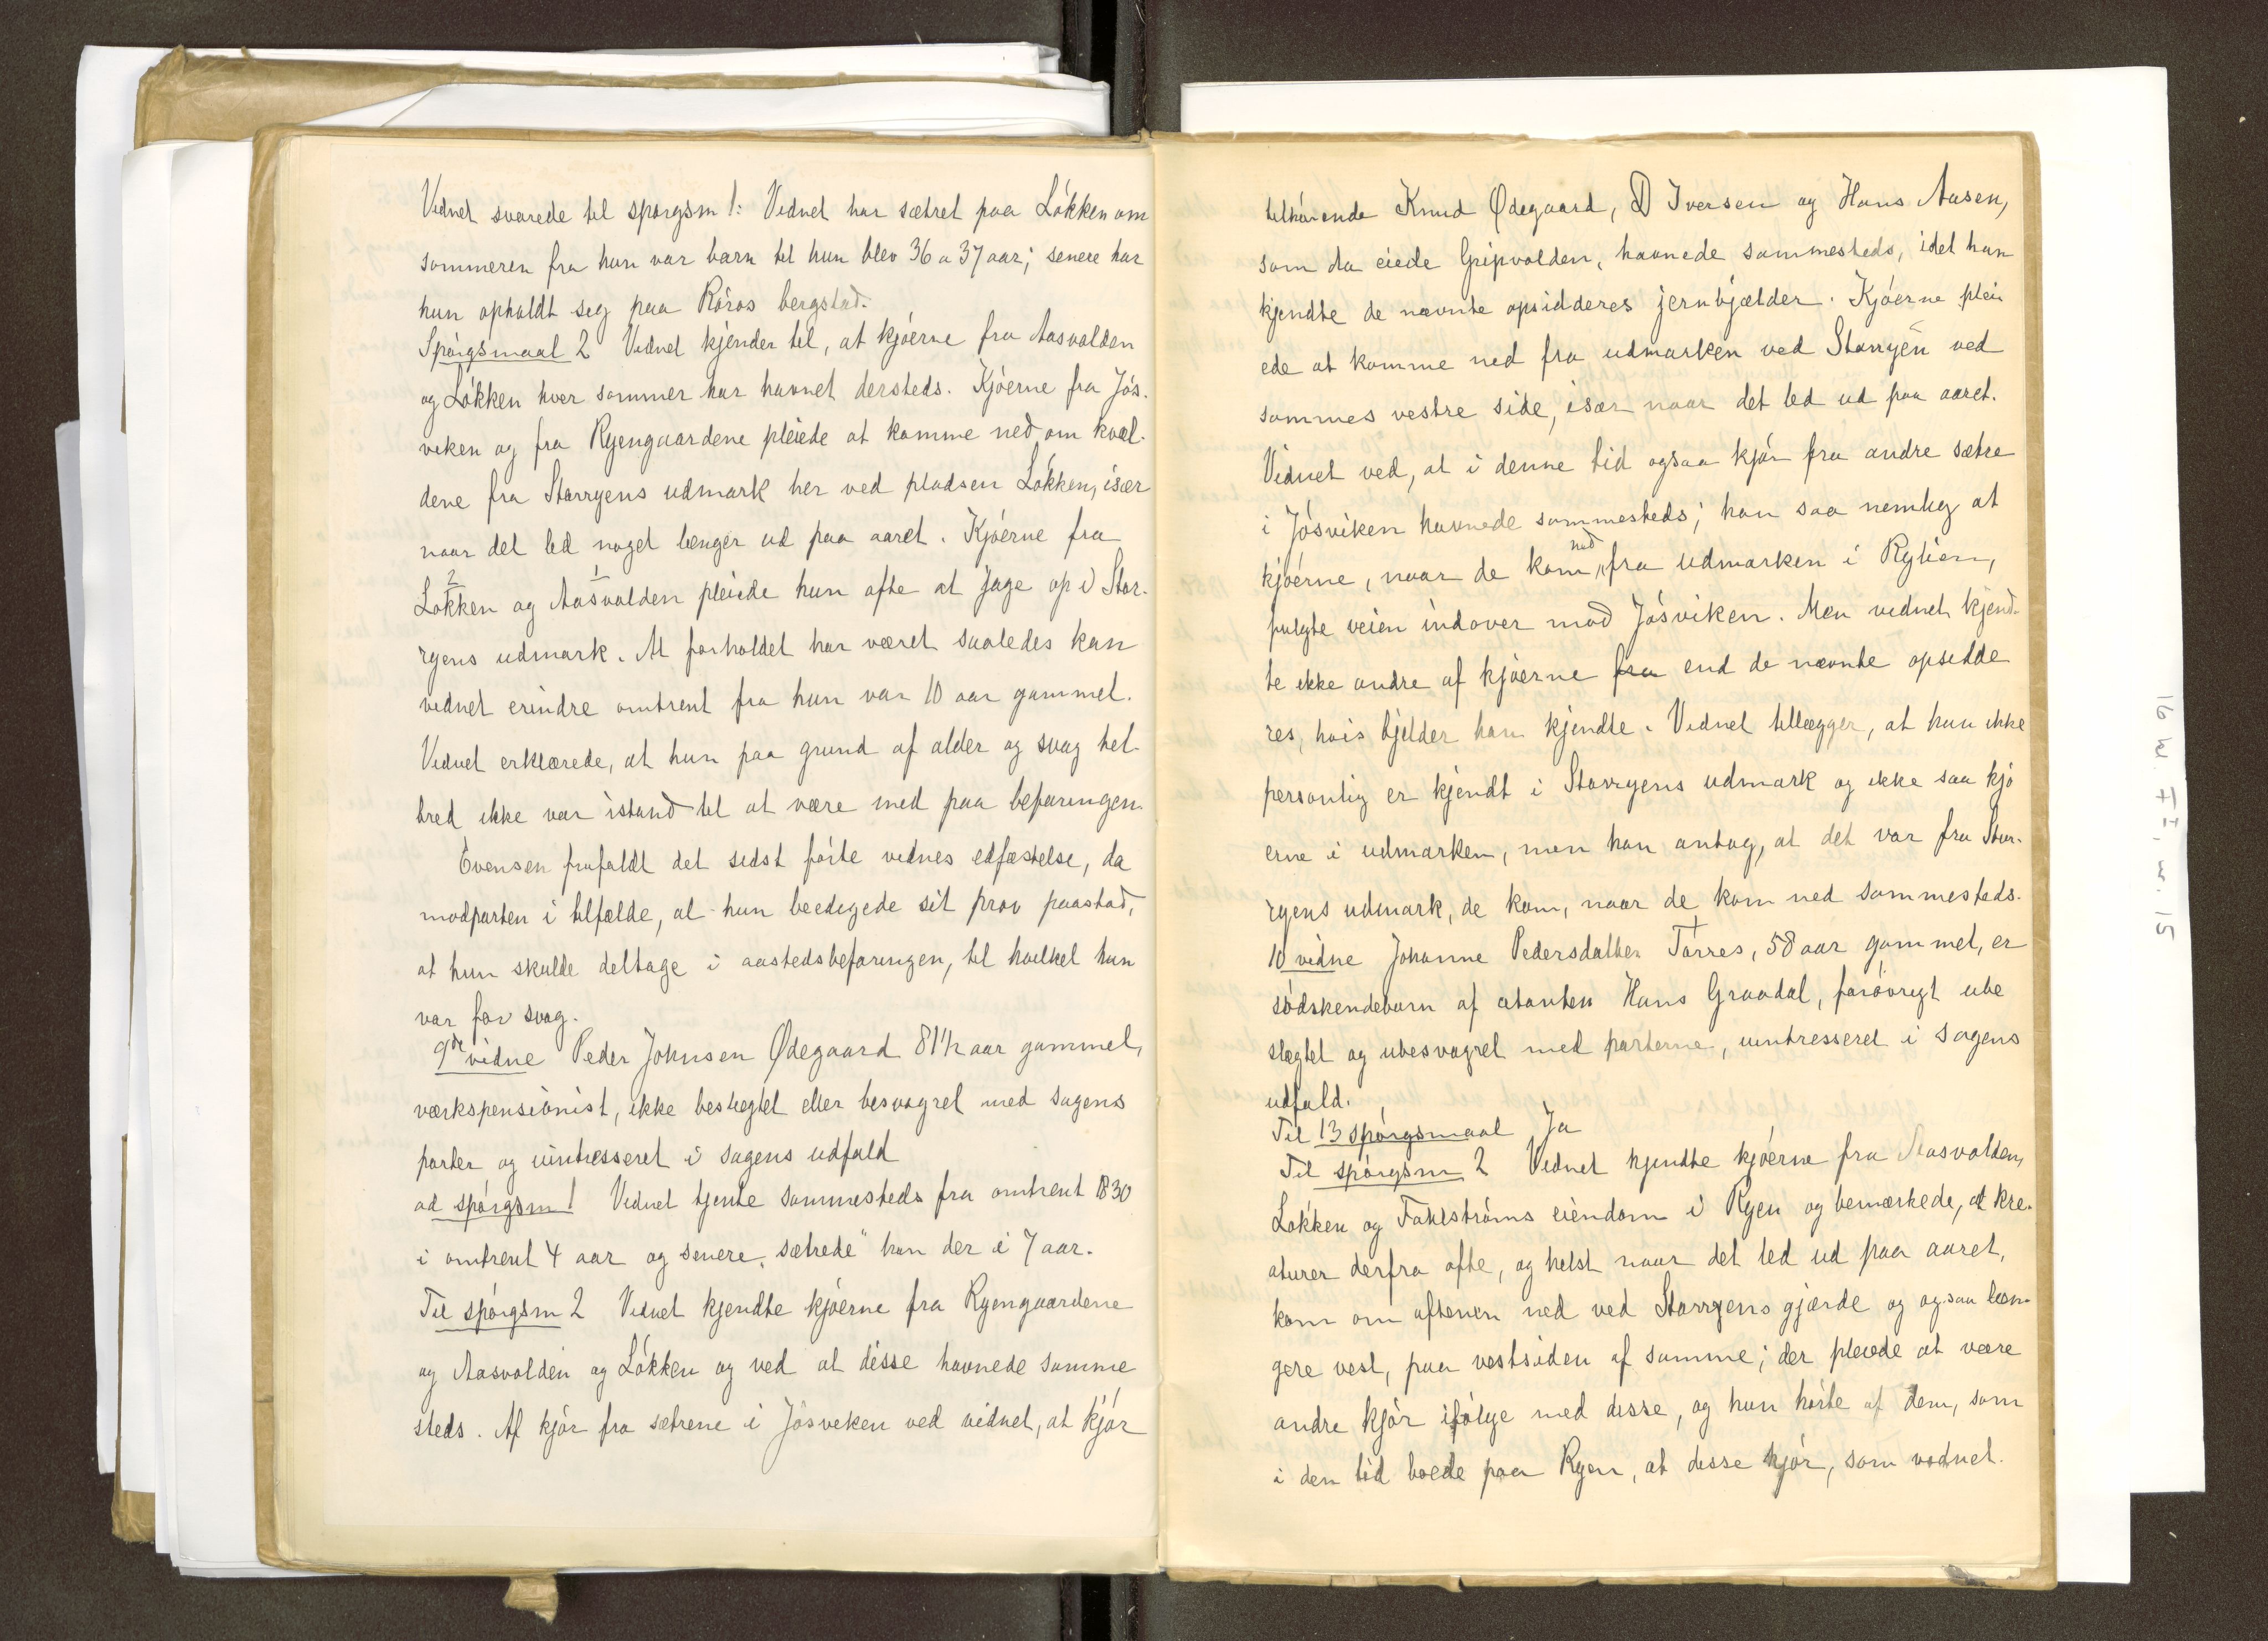 Vidnet svarede til spørgsm 1: Vidnet har sætret paa Løkken om
sommeren fra hun var barn til hun blev 36 a 37 aar; senere har
hun opholdt sig paa Røros bergstad.
Spørgsmaal 2 Vidnet kjender til, at kjøerne fra Aasvolden
og Løkken hver sommer har havnet dersteds. Kjøerne fra Jøs-
viken og fra Ryengaardene pleiede at komme ned om kvel-
dene fra Storryens udmark her ved pladsen Løkken, især
naar det led noget længer ud paa aaret. Kjøerne fra
2 1
Løkken og Aasvolden pleiede hun ofte at jage op i Stor-
ryens udmark. At forholdet har været saaledes kan
vidnet erindre omtrent fra hun var 10 aar gammel.
Vidnet erklærede, at hun paa grund af alder og svag hel-
bred ikke var istand til at være med paa befaringen.
Evensen frafaldt det sidst førte vidnes edfæstelse, da
modparten i tilfælde, at hun beedigede sit prov paastod,
at hun skulde deltage i aastedsbefaringen, til hvilket hun
var for svag.
9de vidne Peder Johnsen Ødegaard 81½ aar gammel,
værkspensionist, ikke beslegtet eller besvogret med sagens
parter og uintresseret i sagens udfald
ad spørgsm 1 Vidnet tjente sammesteds fra omtrent 1830
i omtrent 4 aar og senere „sætrede" han der i 7 aar.
Til spørgsm 2 Vidnet kjendte kjøerne fra Ryengaardene
og Aasvolden og Løkken og ved at disse havnede samme
steds. Af kjør fra sætrene i Jøsviken ved vidnet, at kjør
tilhørende Knud Ødegaard, D Iversen og Hans Aasen,
som da eiede Gripvolden, havnede sammesteds, idet han
kjendte de nævnte opsidderes jernbjælder. Kjøerne plei
ede at komme ned fra udmarken ved Storryen ved
sammes vestre side, især naar det led ud paa aaret.
Vidnet ved, at i denne tid ogsaa kjør fra andre sætre
i Jøsviken havnede sammesteds; han saa nemlig at
kjøerne, naar de kom ned fra udmarken i Rylien,
fulgte veien indover mod Jøsviken. Men vidnet kjend-
te ikke andre af kjøerne fra end de nævnte opsidde
res, hvis bjelder han kjendte. Vidnet tillægger, at han ikke
personlig er kjendt i Storryens udmark og ikke saa kjø
erne i udmarken, men han antog, at det var fra Stor-
ryens udmark, de kom, naar de kom ned sammesteds.
10 vidne Johanne Pedersdatter Tørres, 58 aar gammel, er
sødskendebarn af citanten Hans Graadal, forøvrigt ube
slegtet og ubesvogret med parterne, uintresseret i sagens
udfald.
Til 13 spørgsmaal Ja
Til spørgsm 2 Vidnet kjendte kjøerne fra Aasvolden,
Løkken og Fahlstrøms eiendom i Ryen og bemærkede, at kre-
aturer derfra ofte, og helst naar det led ud paa aaret,
kom om aftenen ned ved Storryens gjærde og ogsaa læn-
gere vest, paa vestsiden af samme; der pleiede at være
andre kjør ifølge med disse, og hun hørte af dem, som
i den tid boede paa Ryen, at disse kjør, som vidnet
16 W. FI, nr. 15